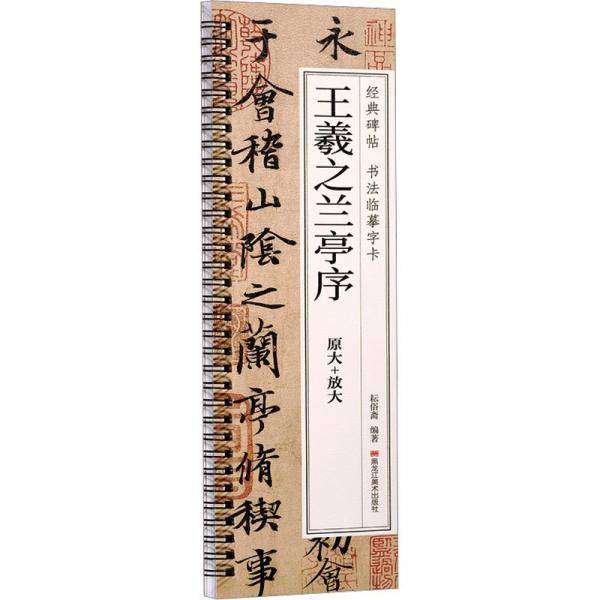 永
初會
于會稽山陰之蘭亭脩稧事
经典碑帖 书法临摹字卡
王羲之兰亭序
原大+放大
耘俗斋 编著
黑龙江美术出版社